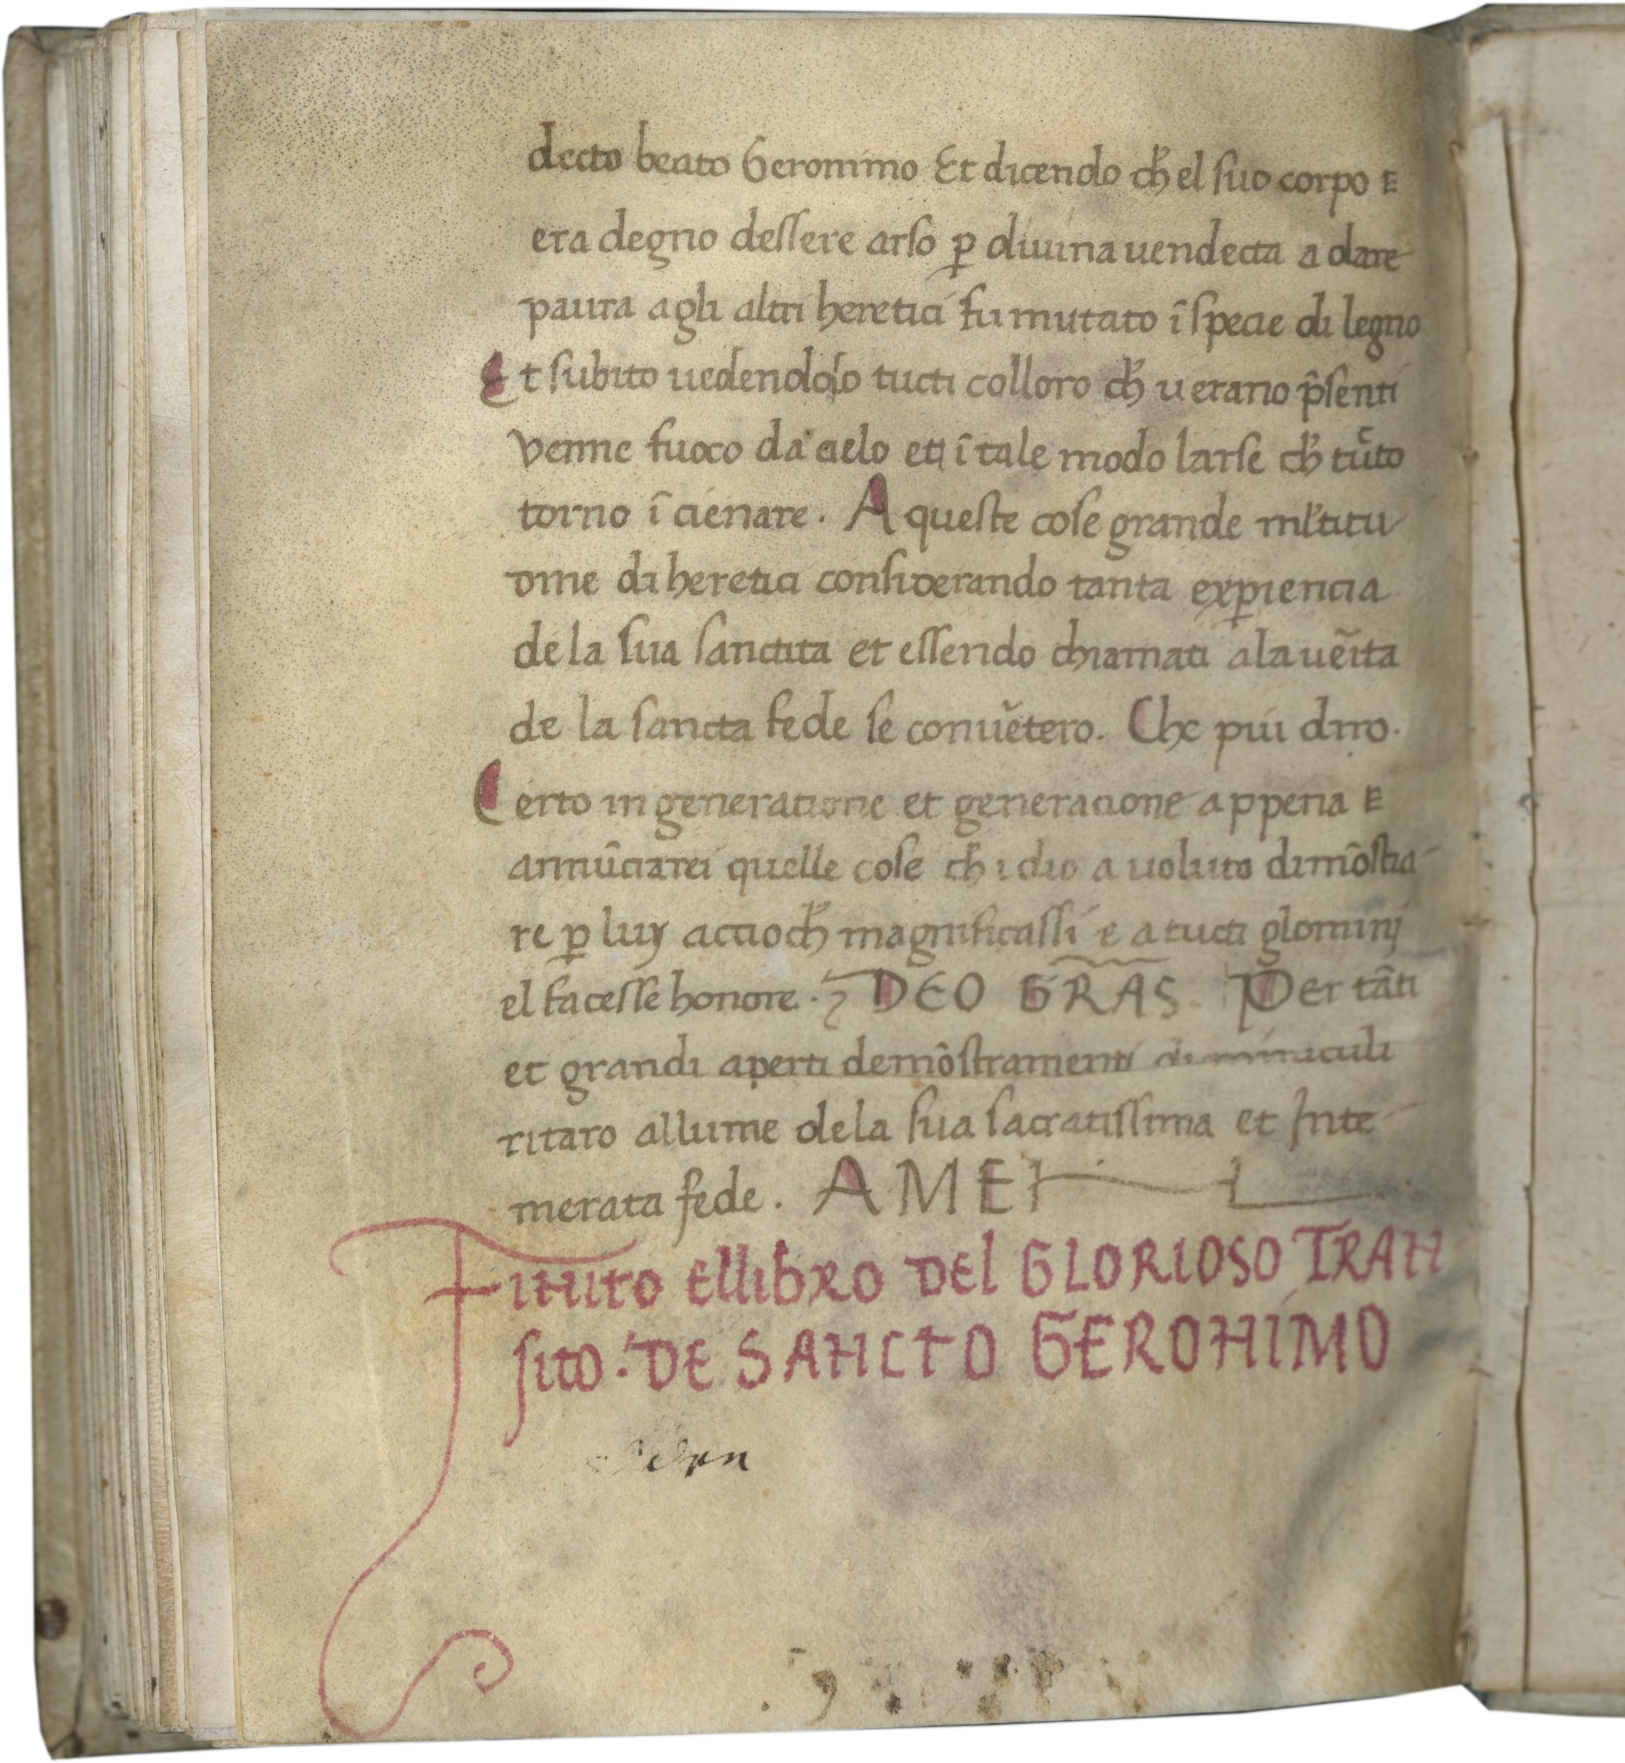 decto beato Geronimo Et dicendo ch̄ el suo corpo E
era degno dessere arso ꝑ diuina uendecta a dare
paura agli altri heretici fu mutato ī specie di legno
Et subito uedendolo tucti colloro ch̄ uerano p̄senti
venne fuoco da cielo et ī tale modo larse ch̄ tucto
torno ī cienare. A queste cose grande ml̄titu
dine di heretici considerando tanta exꝑiencia
de la sua sanctita et essendo chiamati a la uẽita
de la sancta fede se conuẽtero. Che piu diro.
Certo in generatione et generacione appena E
annūciarei quelle cose ch̄ idio a uoluto dimōstra
re ꝑ luy accioch̄ magnificassi e a tucti glominj
el facesse honore. DEO GR̄AS. Per tāti
et grandi aperti demōstramenti di miraculi
ritaro allume dela sua sacratissima et Inte
merata fede. AMEN
Finito ellibro del GLORIOSO TRAN
sito: DE SANCTO GERONIMO